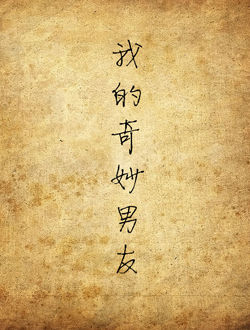 我的奇妙男友